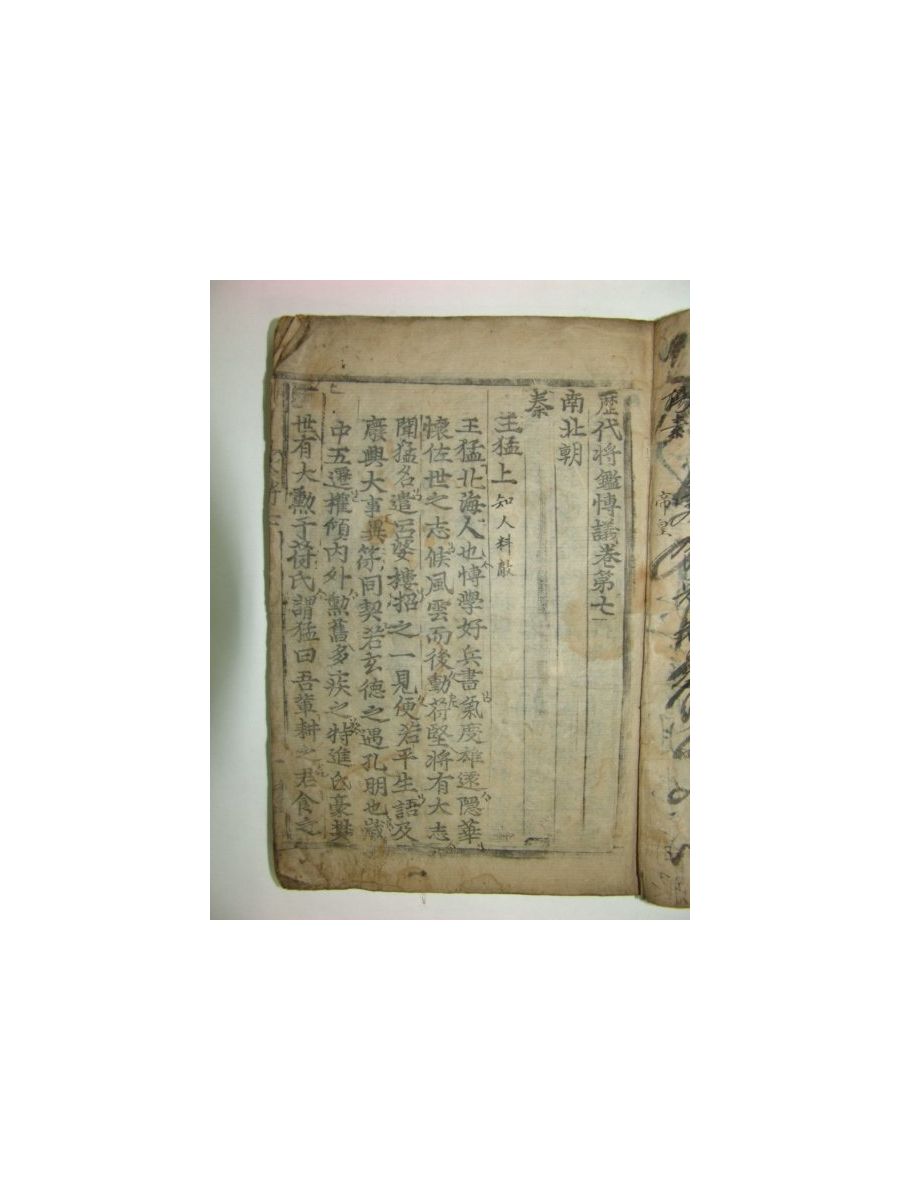 歷代将鑑愽議卷第七
南北朝
秦
王猛上 知人料敵
王猛北海人也愽學好兵書氣度雄遠隠華
懷佐世之志候風雲而後動苻堅将有大志
聞猛名遣呂婆樓招之一見便若平生語及
廢興大事異符同契若玄德之遇孔明也歲
中五遷權傾内外勲舊多疾之特進氐豪樊
世有大勲于苻氏謂猛曰吾軰耕之君食之
帝皇